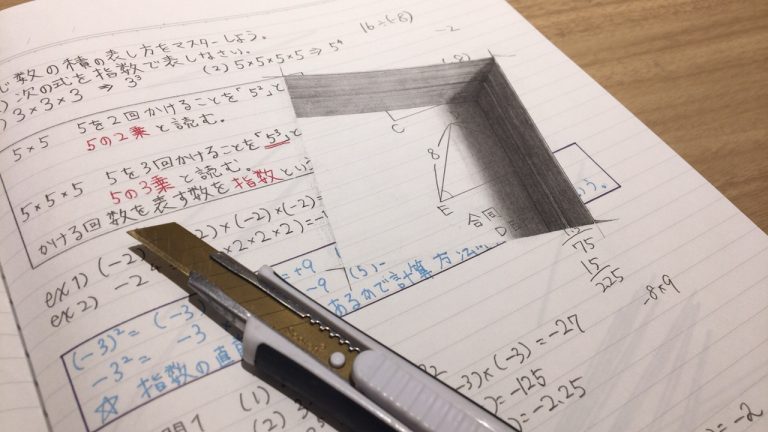 数の積の表し方をマスターしよう。
次の式を指数で表しなさい。
3×3×3 ⇒ 3³
(2) 5×5×5×5 ⇒ 5⁴
16÷(-8)
-2
5×5 5を2回かけることを「5²」と
5の2乗 と読む。
5×5×5 5を3回かけることを「5³」と
5の3乗 と読む。
かける回数を表す数を指数という
C
8
E
合同
ex1) (-2)
×(-2)×(-2)=
ex2) -2
×2×2×2)=-1
75
15
225
-8×9
(-3)² = (-3)
=+9
-3² = -3
-9
(5)
あるので計算方法
☆ 指数の
(1)
-3)×(-3)=-27
=-125
=-2.25
=-2